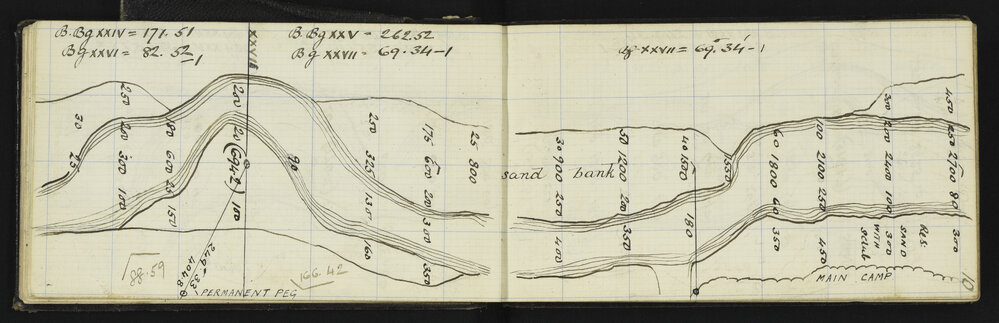 B. Bg XXIV = 171. 51
Bg XXVI = 82. 52-1
XXVII
B. Bg XXV = 262.52
Bg XXVII = 69. 34-1
Bg XXVII = 69. 34-1
30
25
250
200
300
100
180
600
25
150
200
120
(6942)
100
90
250
325
130
160
175
600
200
300
350
25
800
sand bank
30
900
250
400
50
1200
200
350
40
1500
180
1550
60
1800
60
350
100
2100
250
450
300
200
2400
100
300
WITH
Scrub
SAND
Res.
450
250
2700
80
300
88.59
166.42
249-33
40480
PERMANENT PEG
MAIN CAMP
10